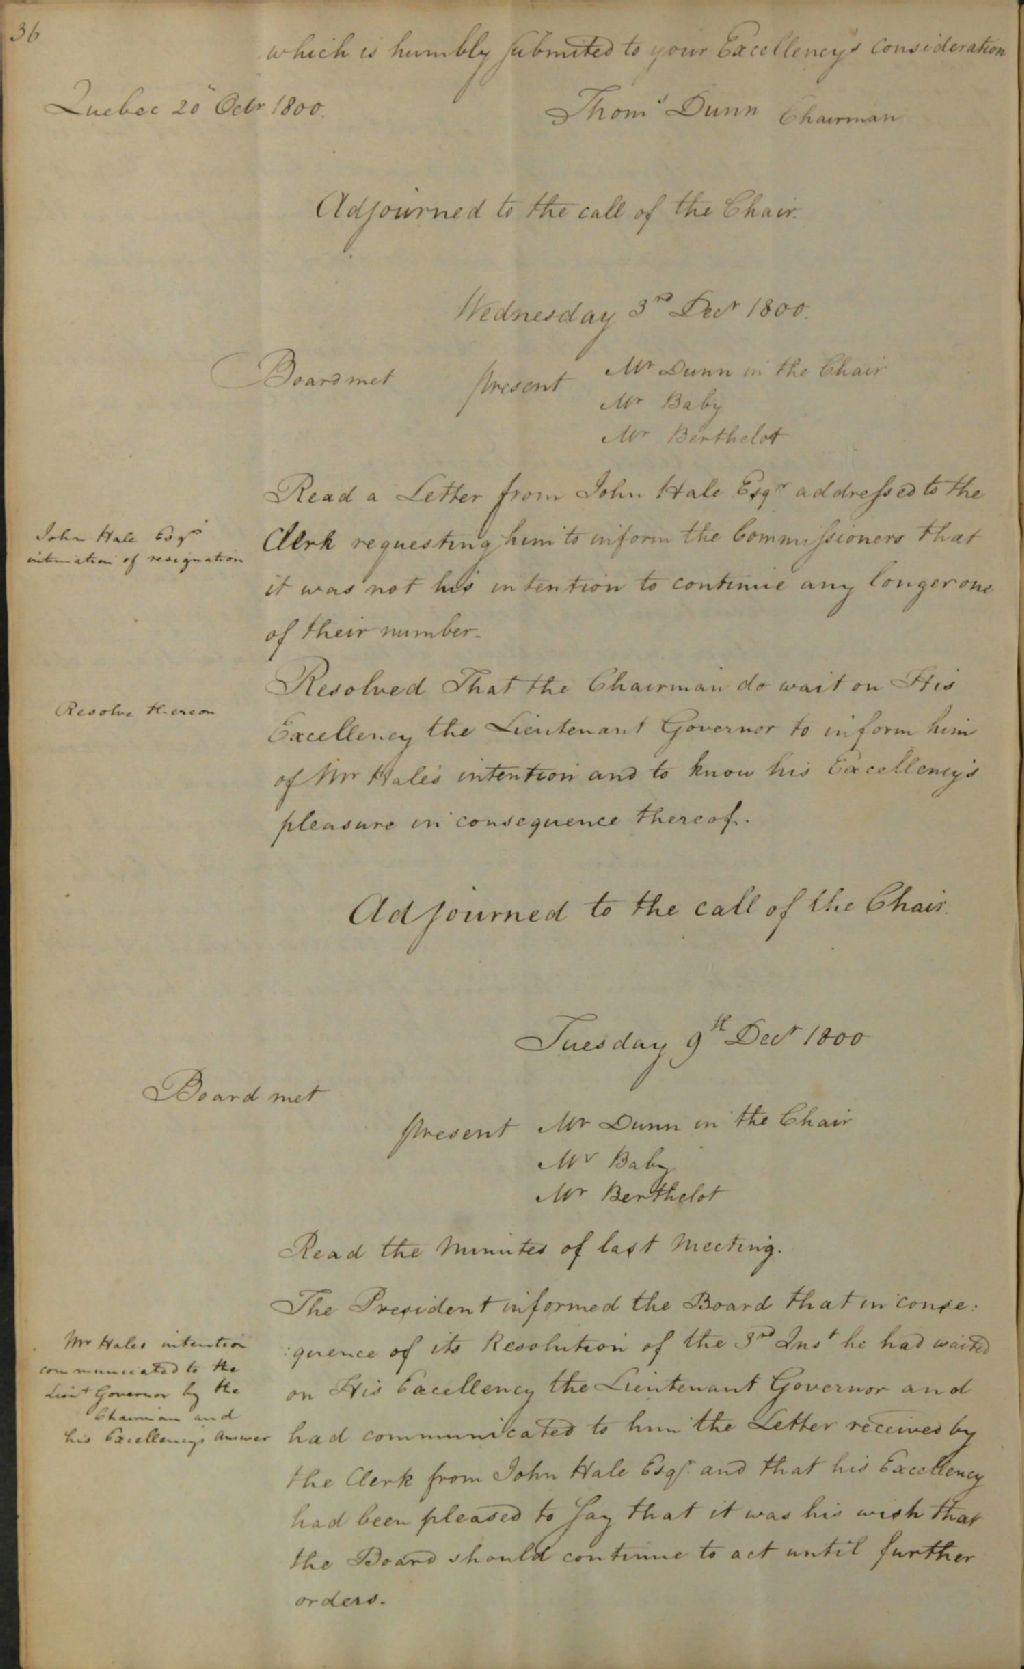 36
which is humbly submited to your Excellency's consideration
Quebec 20th Octr 1800.
Thoms Dunn Chairman
Adjourned to the call of the Chair.
Wednesday 3rd Decr 1800.
Board met present Mr Dunn in the Chair
Mr Baby
Mr Berthelot
Read a Letter from John Hale Esqr addressed to the
John Hale Esqr
intimation of resignation
Clerk requesting him to inform the Commissioners that
it was not his intention to continue any longer one
of their number.
Resolved That the Chairman do wait on His
Resolve thereon
Excellency the Lieutenant Governor to inform him
of Mr Hale's intention and to know his Excellency's
pleasure in consequence thereof.
Adjourned to the call of the Chair.
Tuesday 9th Decr 1800
Board met
present Mr Dunn in the Chair
Mr Baby
Mr Berthelot
Read the Minutes of last Meeting.
The President informed the Board that in conse:
Mr Hales intention
communicated to the
Lieut Governor by the
Chairman and
his Excellency's Answer
:quence of its Resolution of the 3rd Inst he had waited
on His Excellency the Lieutenant Governor and
had communicated to him the Letter received by
the Clerk from John Hale Esqr and that his Excellency
had been pleased to Say that it was his wish that
the Board should continue to act until further
orders.